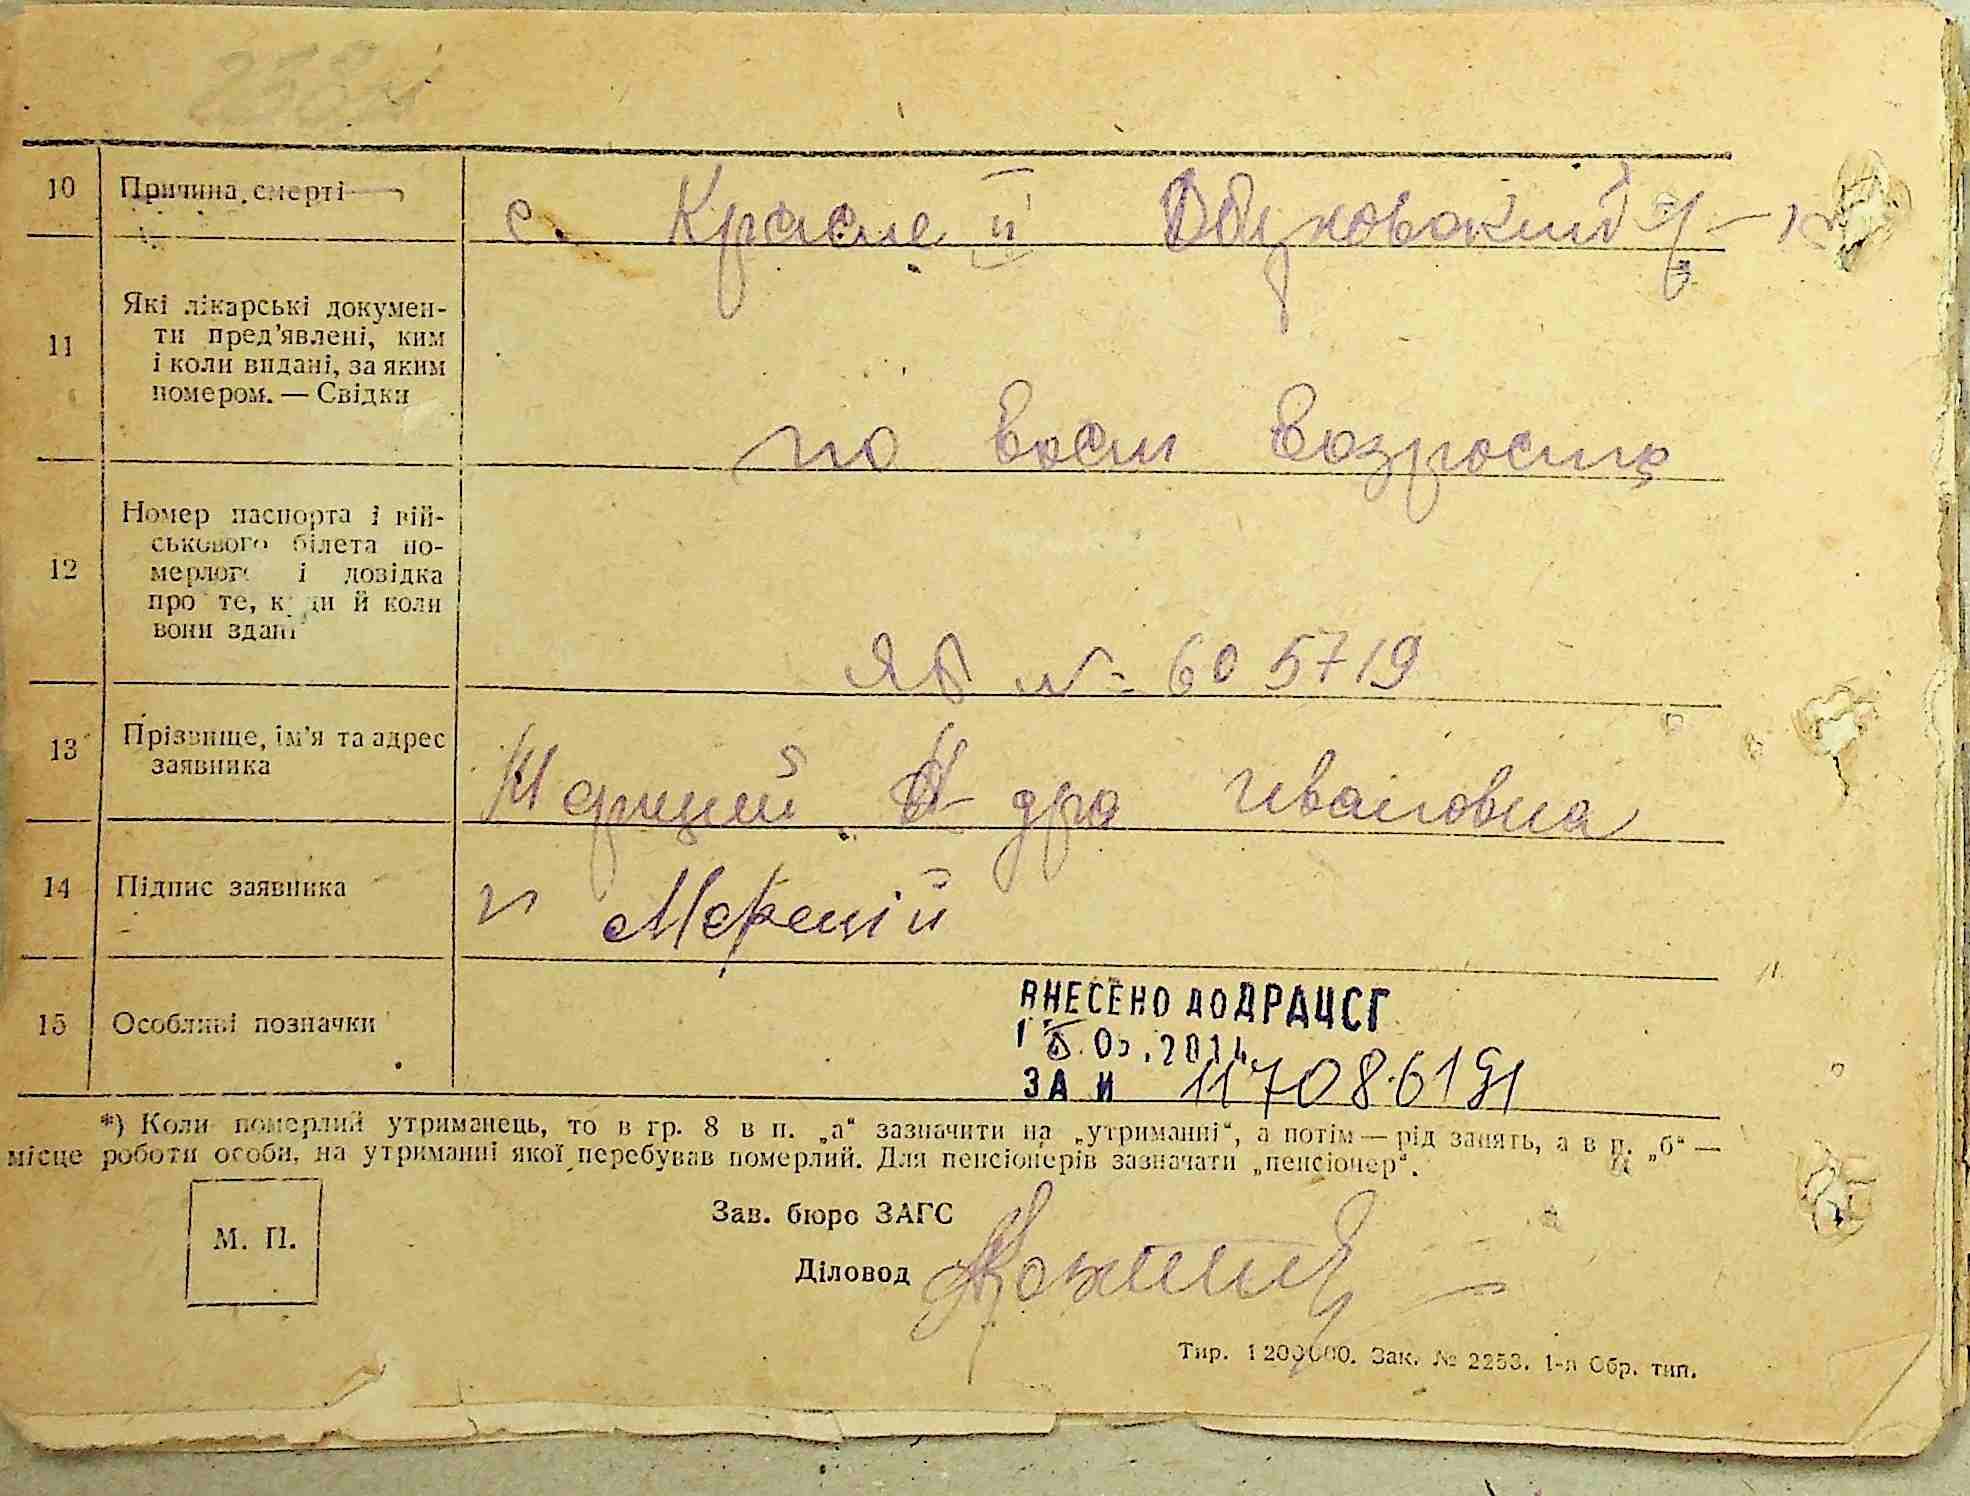 10 Причина смерті
с. Красне ІІ Обуховский р-н
11 Які лікарські докумен-
ти пред'явлені, ким
і коли видані, за яким
номером. — Свідки
по
12 Номер паспорта і вій-
ськового білета по-
мерлого і довідка
про те, куди й коли
вони здані
ЯБ № 605719
13 Прізвище, ім'я та адрес
заявника
Ивановна
14 Підпис заявника
15 Особливі позначки
ВНЕСЕНО ДО ДРАЦСГ
ЗА И 11708619
*) Коли померлий утриманець, то в гр. 8 в п. „а“ зазначити на „утриманні“, а потім — рід занять, а в п. „б“ —
місце роботи особи, на утриманні якої перебував померлий. Для пенсіонерів зазначати „пенсіонер“.
М. П.
Зав. бюро ЗАГС
Діловод
Тир. 1200000. Зак. № 2253. 1-а Обр. тип.